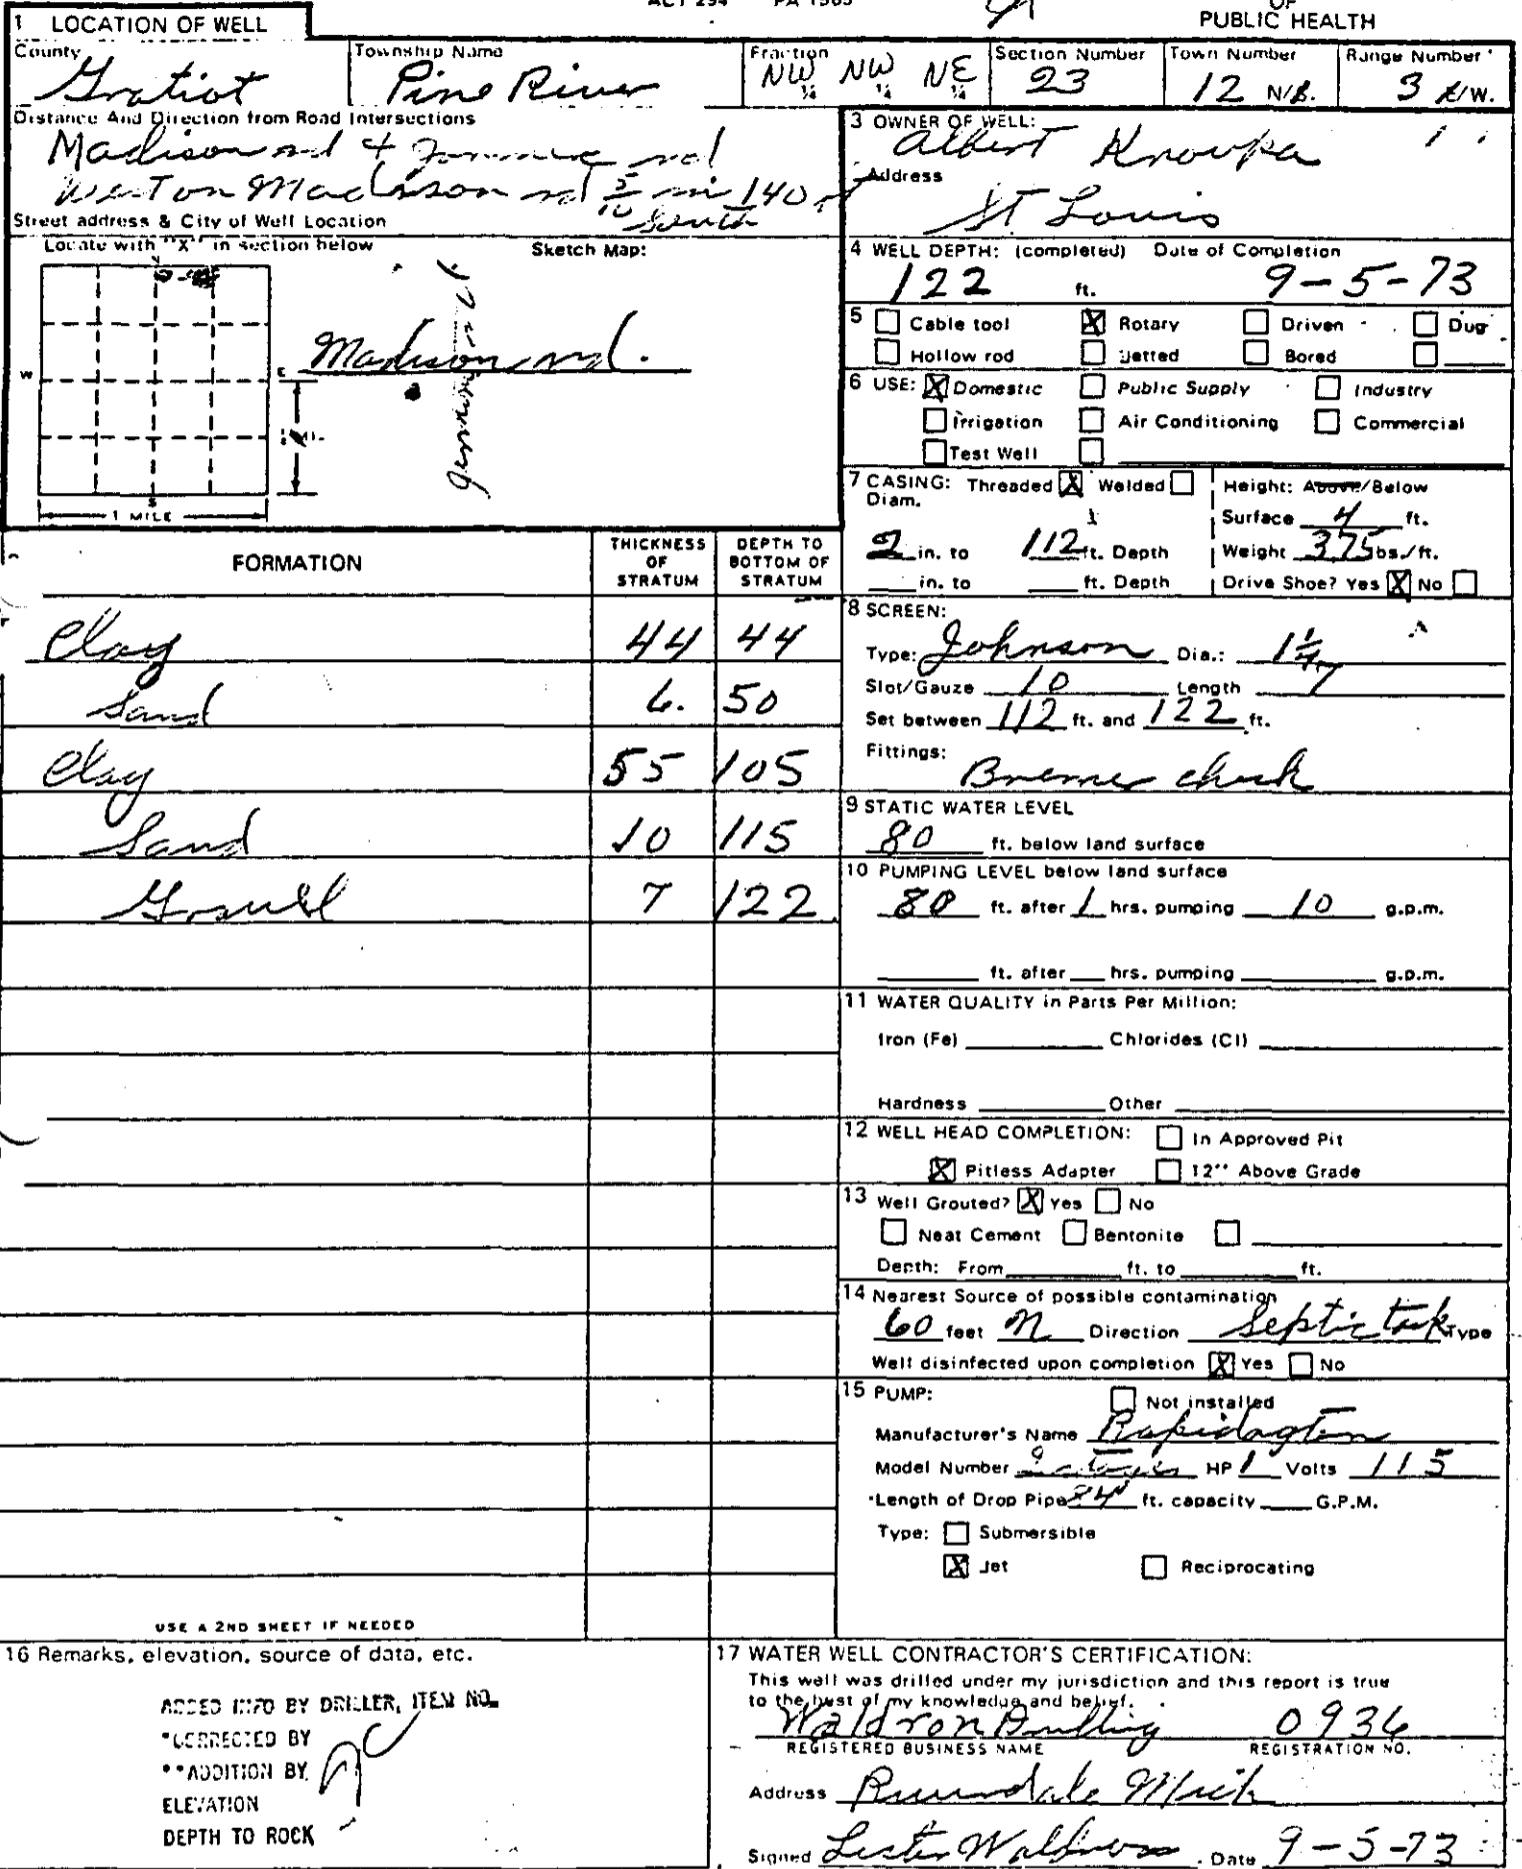 ACT 294 PA 1965
OF
PUBLIC HEALTH
1 LOCATION OF WELL
County
Gratiot
Township Name
Pine River
Fraction
NW ¼ NW ¼ NE ¼
Section Number
23
Town Number
12 N/S.
Range Number
3 E/W.
Distance And Direction from Road Intersections
Madison rd +
West on Madison rd 5/10 mi 140
South
Street address & City of Well Location
Locate with "X" in section below
Sketch Map:
N
W
E
S
1 MILE
Madison rd.
3 OWNER OF WELL:
Albert
Address
St Louis
4 WELL DEPTH: (completed) Date of Completion
122 ft. 9-5-73
5 Cable tool X Rotary Driven Dug
Hollow rod Jetted Bored
6 USE: X Domestic Public Supply Industry
Irrigation Air Conditioning Commercial
Test Well
7 CASING: Threaded X Welded
Diam.
2 in. to 112 ft. Depth
in. to ft. Depth
Height: Above/Below
Surface 4 ft.
Weight 375 bs./ft.
Drive Shoe? Yes X No
FORMATION
THICKNESS OF STRATUM
DEPTH TO BOTTOM OF STRATUM
Clay 44 44
Sand 6. 50
Clay 55 105
Sand 10 115
Gravel 7 122
USE A 2ND SHEET IF NEEDED
8 SCREEN:
Type: Johnson Dia.: 1¼
Slot/Gauze 10 Length 7
Set between 112 ft. and 122 ft.
Fittings:
check
9 STATIC WATER LEVEL
80 ft. below land surface
10 PUMPING LEVEL below land surface
80 ft. after 1 hrs. pumping 10 g.p.m.
ft. after hrs. pumping g.p.m.
11 WATER QUALITY in Parts Per Million:
Iron (Fe) Chlorides (Cl)
Hardness Other
12 WELL HEAD COMPLETION: In Approved Pit
X Pitless Adapter 12'' Above Grade
13 Well Grouted? X Yes No
Neat Cement Bentonite
Depth: From ft. to ft.
14 Nearest Source of possible contamination
60 feet N Direction Septic tank Type
Well disinfected upon completion X Yes No
15 PUMP: Not installed
Manufacturer's Name
Model Number HP 1 Volts 115
Length of Drop Pipe 84 ft. capacity G.P.M.
Type: Submersible
X Jet Reciprocating
16 Remarks, elevation, source of data, etc.
ADDED INFO BY DRILLER, ITEM NO.
*CORRECTED BY
**ADDITION BY
ELEVATION
DEPTH TO ROCK
17 WATER WELL CONTRACTOR'S CERTIFICATION:
This well was drilled under my jurisdiction and this report is true
to the best of my knowledge and belief.
Waldron Drilling 0936
REGISTERED BUSINESS NAME REGISTRATION NO.
Address Mich
Signed Lester Waldron Date 9-5-73